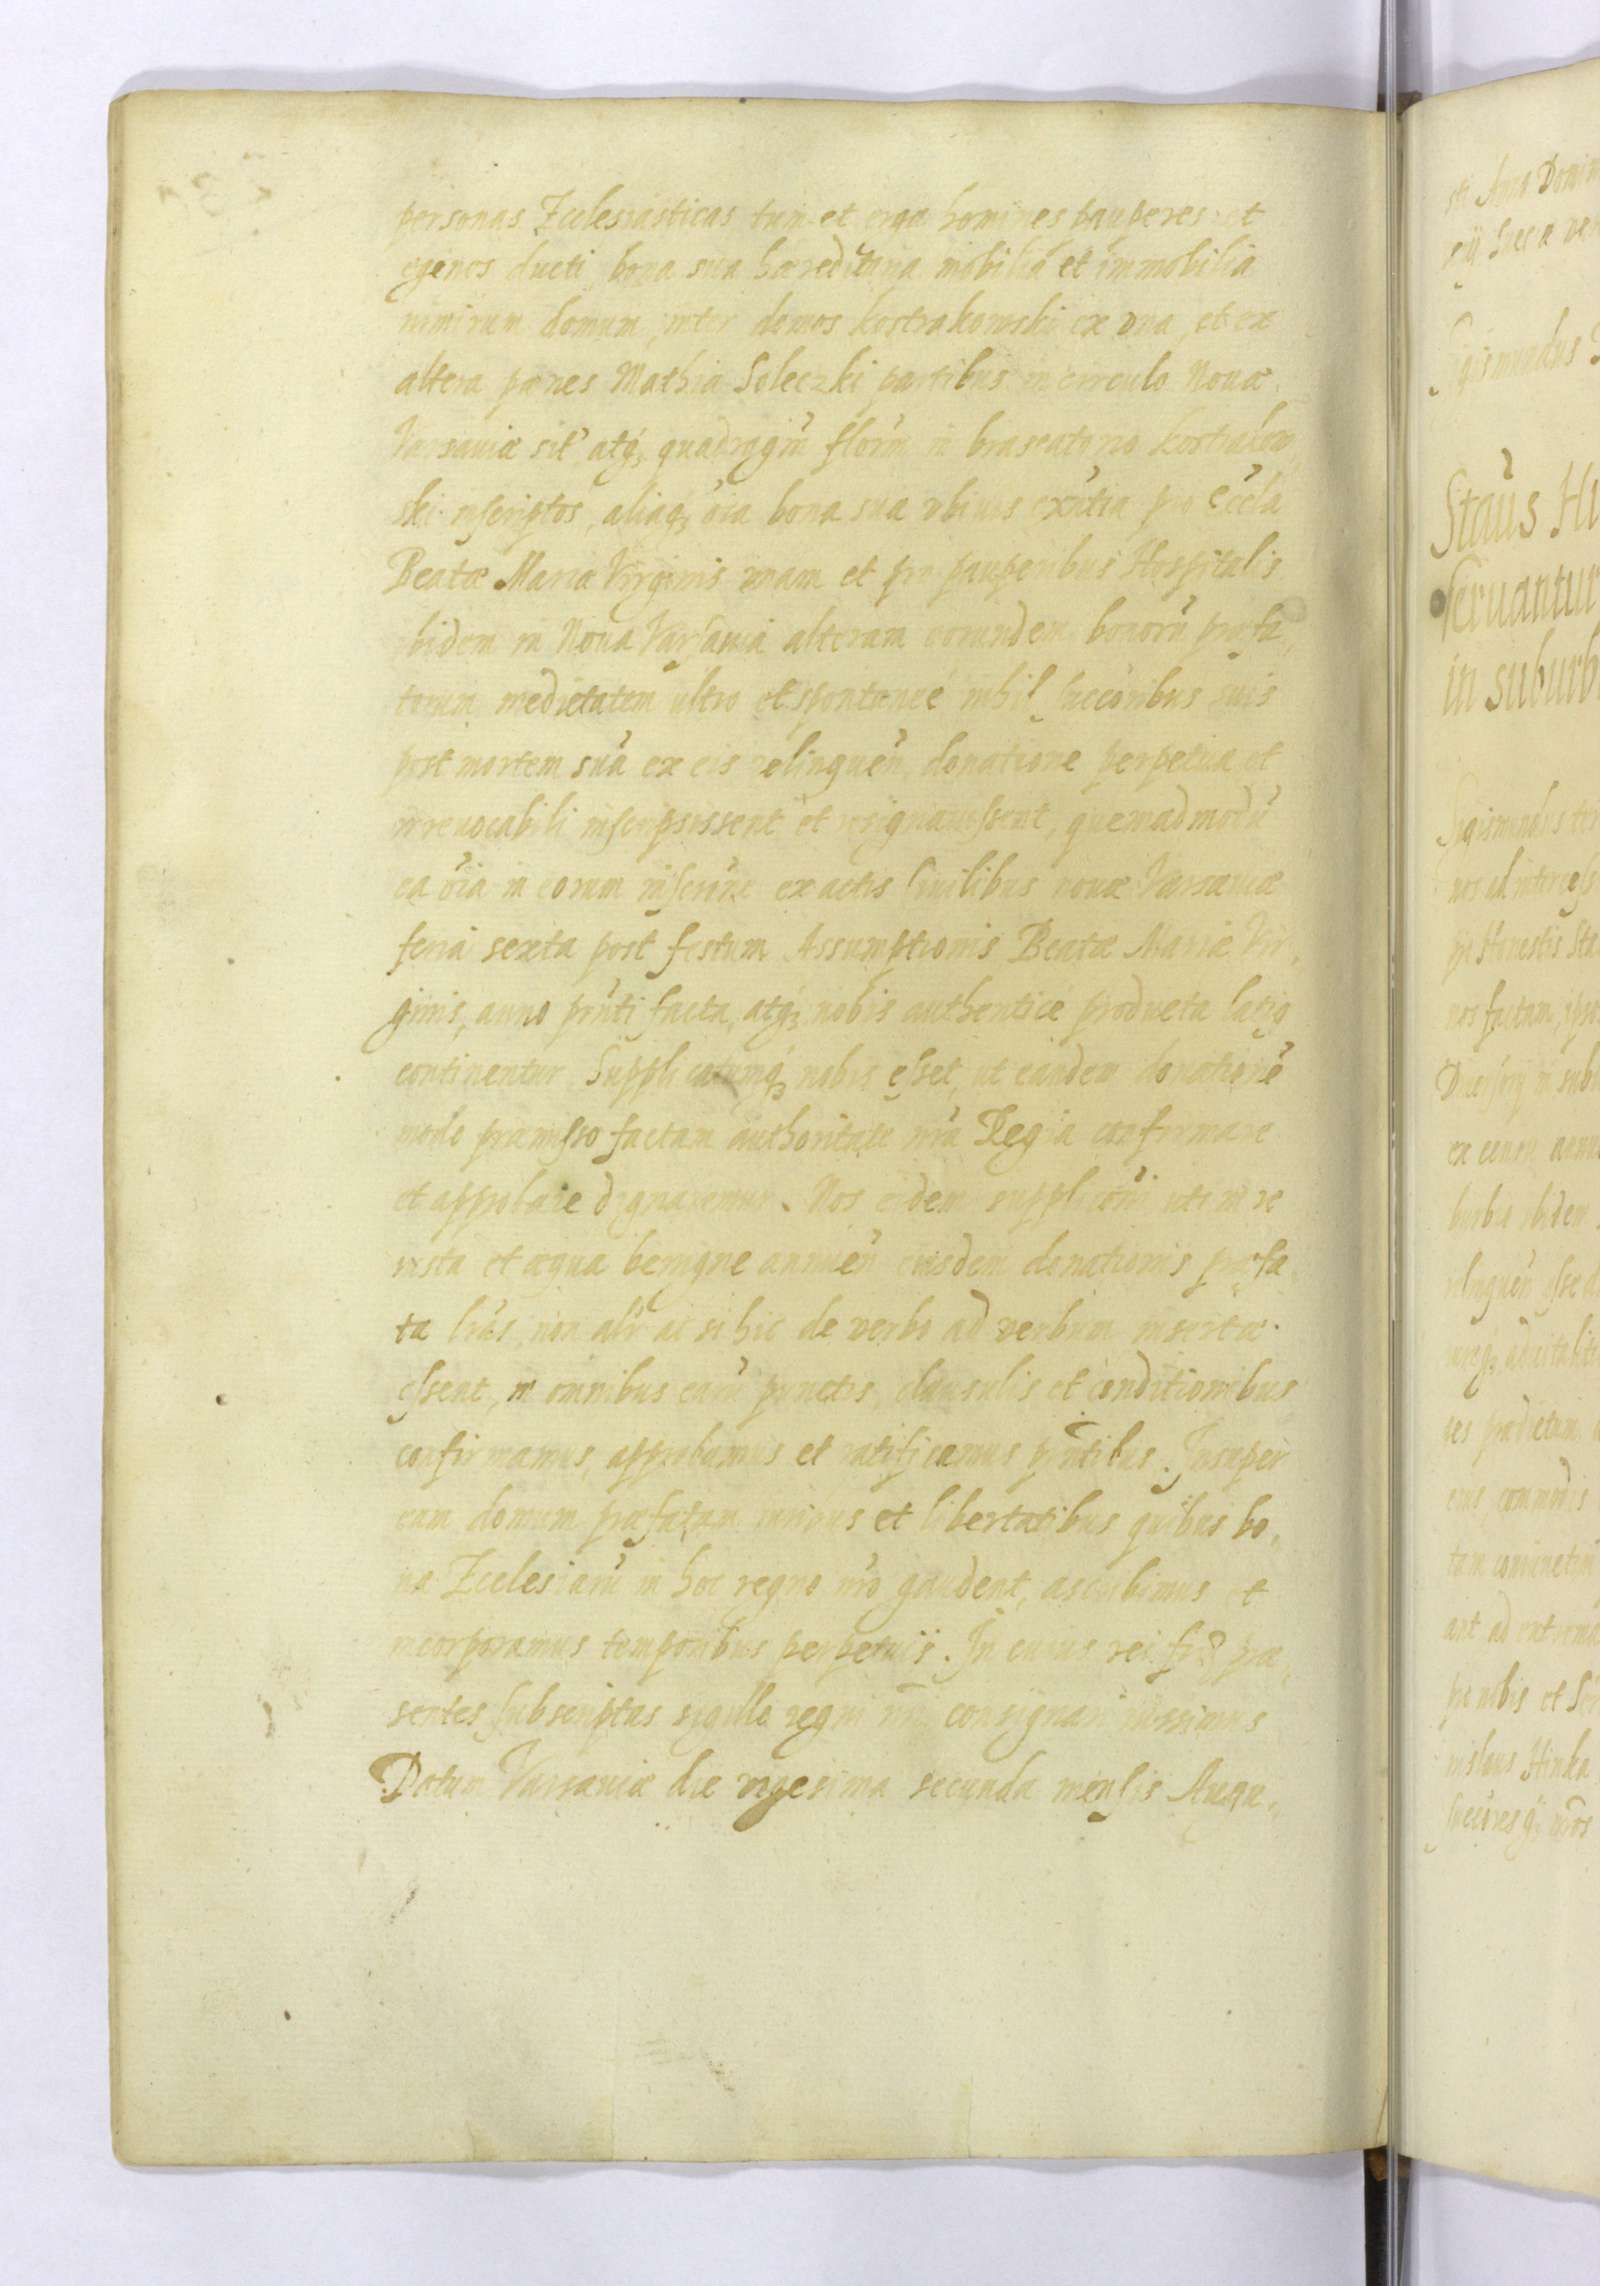 personas Ecclesiasticas tum et erga homines pauperes et
egenos ducti, bona sua hæreditaria mobilia et immobilia
nimirum domum, inter domos Kostrakowski ex vna, et ex
altera penes Mathia Soleczki partibus in circulo Nouæ
Varsauiæ sit̃ atq3 quadragin̄ florū in braseatorio Kostrakow
ski inscriptos, aliaq3 oīa bona sua vbiuis exñtia pro Eccla
Beatæ Maria Virginis vnam et pro pauperibus Hospitalis
ibidem in Noua Varsauia alteram eorundem bonorū præfa,
torum medietatem ultro et spontanee nihil succoribus suis
post mortem suā ex eis relinquen̄ donatione perpetua et
irreuocabili inscripsissent et resignauissent, quemadmodū
ea oīa in eorum inscrīne ex actis Ciuilibus nouæ Varsauiæ
feria sexta post festum Assumptionis Beatæ Mariæ Vir,
ginis, anno prn̄ti facta, atq3 nobis authentice producta latiq
continentur Supplicatumq3 nobis esset, ut eandem donationē
modo præmisso factam authoritate nrā Regia confirmare
et approbare dignaremur. Nos eidem supplicōni uti in re
iusta et æqua benigne annuen̄ eiusdem donationis præfa
ta lrās, non alr̄ ac si hic de verbo ad verbum insertæ
essent, in omnibus earū punctis, clausulis et conditionibus
confirmamus, approbamus et ratificamus prn̄tibus. Insuper
eam domum præfatam iuribus et libertatibus quibus bo,
na Ecclesiarū in hoc regno nrō gaudent, ascribimus et
incorporamus temporibus perpetuis. In cuius rei fid præ,
sentes subscriptas sigillo regni nrī consignari iussimus
Datum Varsauiæ die vigesima secunda mensis Augu,
sti Anno Domin
Sueciæ
Sigismundus
Staūs Hi
seruantur
in suburb
Sigismundus ter
nos ad intercess
Honestis Sta
nos factam, ipso
in sub
ex eorum
burbio ibidem
relinquen̄ esse
prædictam
eius, commodis
ant ad extrema
pro nobis et
nislaus Hinka
succōres q3 nrōs